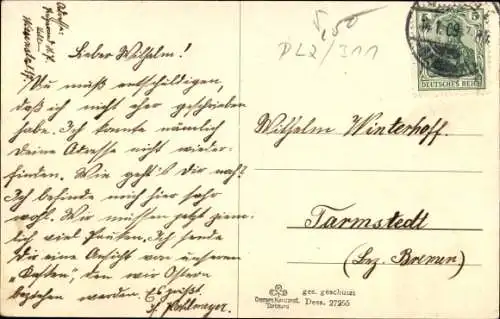 Adresse:
Lieber Wilhelm!
Du mußt entschuldigen,
daß ich nicht eher geschrieben
habe. Ich konnte nämlich
Deine Adresse nicht wieder-
finden. Wie geht's Dir noch?
Ich befinde mich hier sehr
wohl. Wir müssen jetzt ziem-
lich viel Pauken. Ich sende
Dir eine Ansicht von unserem
"Kasten", den wir Ostern
beziehen werden. Es grüßt
Pohlmeyer.
1,50
PL2/311
5
DEUTSCHES REICH
Wilhelm Winterhoff.
Tarmstedt
(Bez. Bremen)
ges. geschützt
Dess. 27255